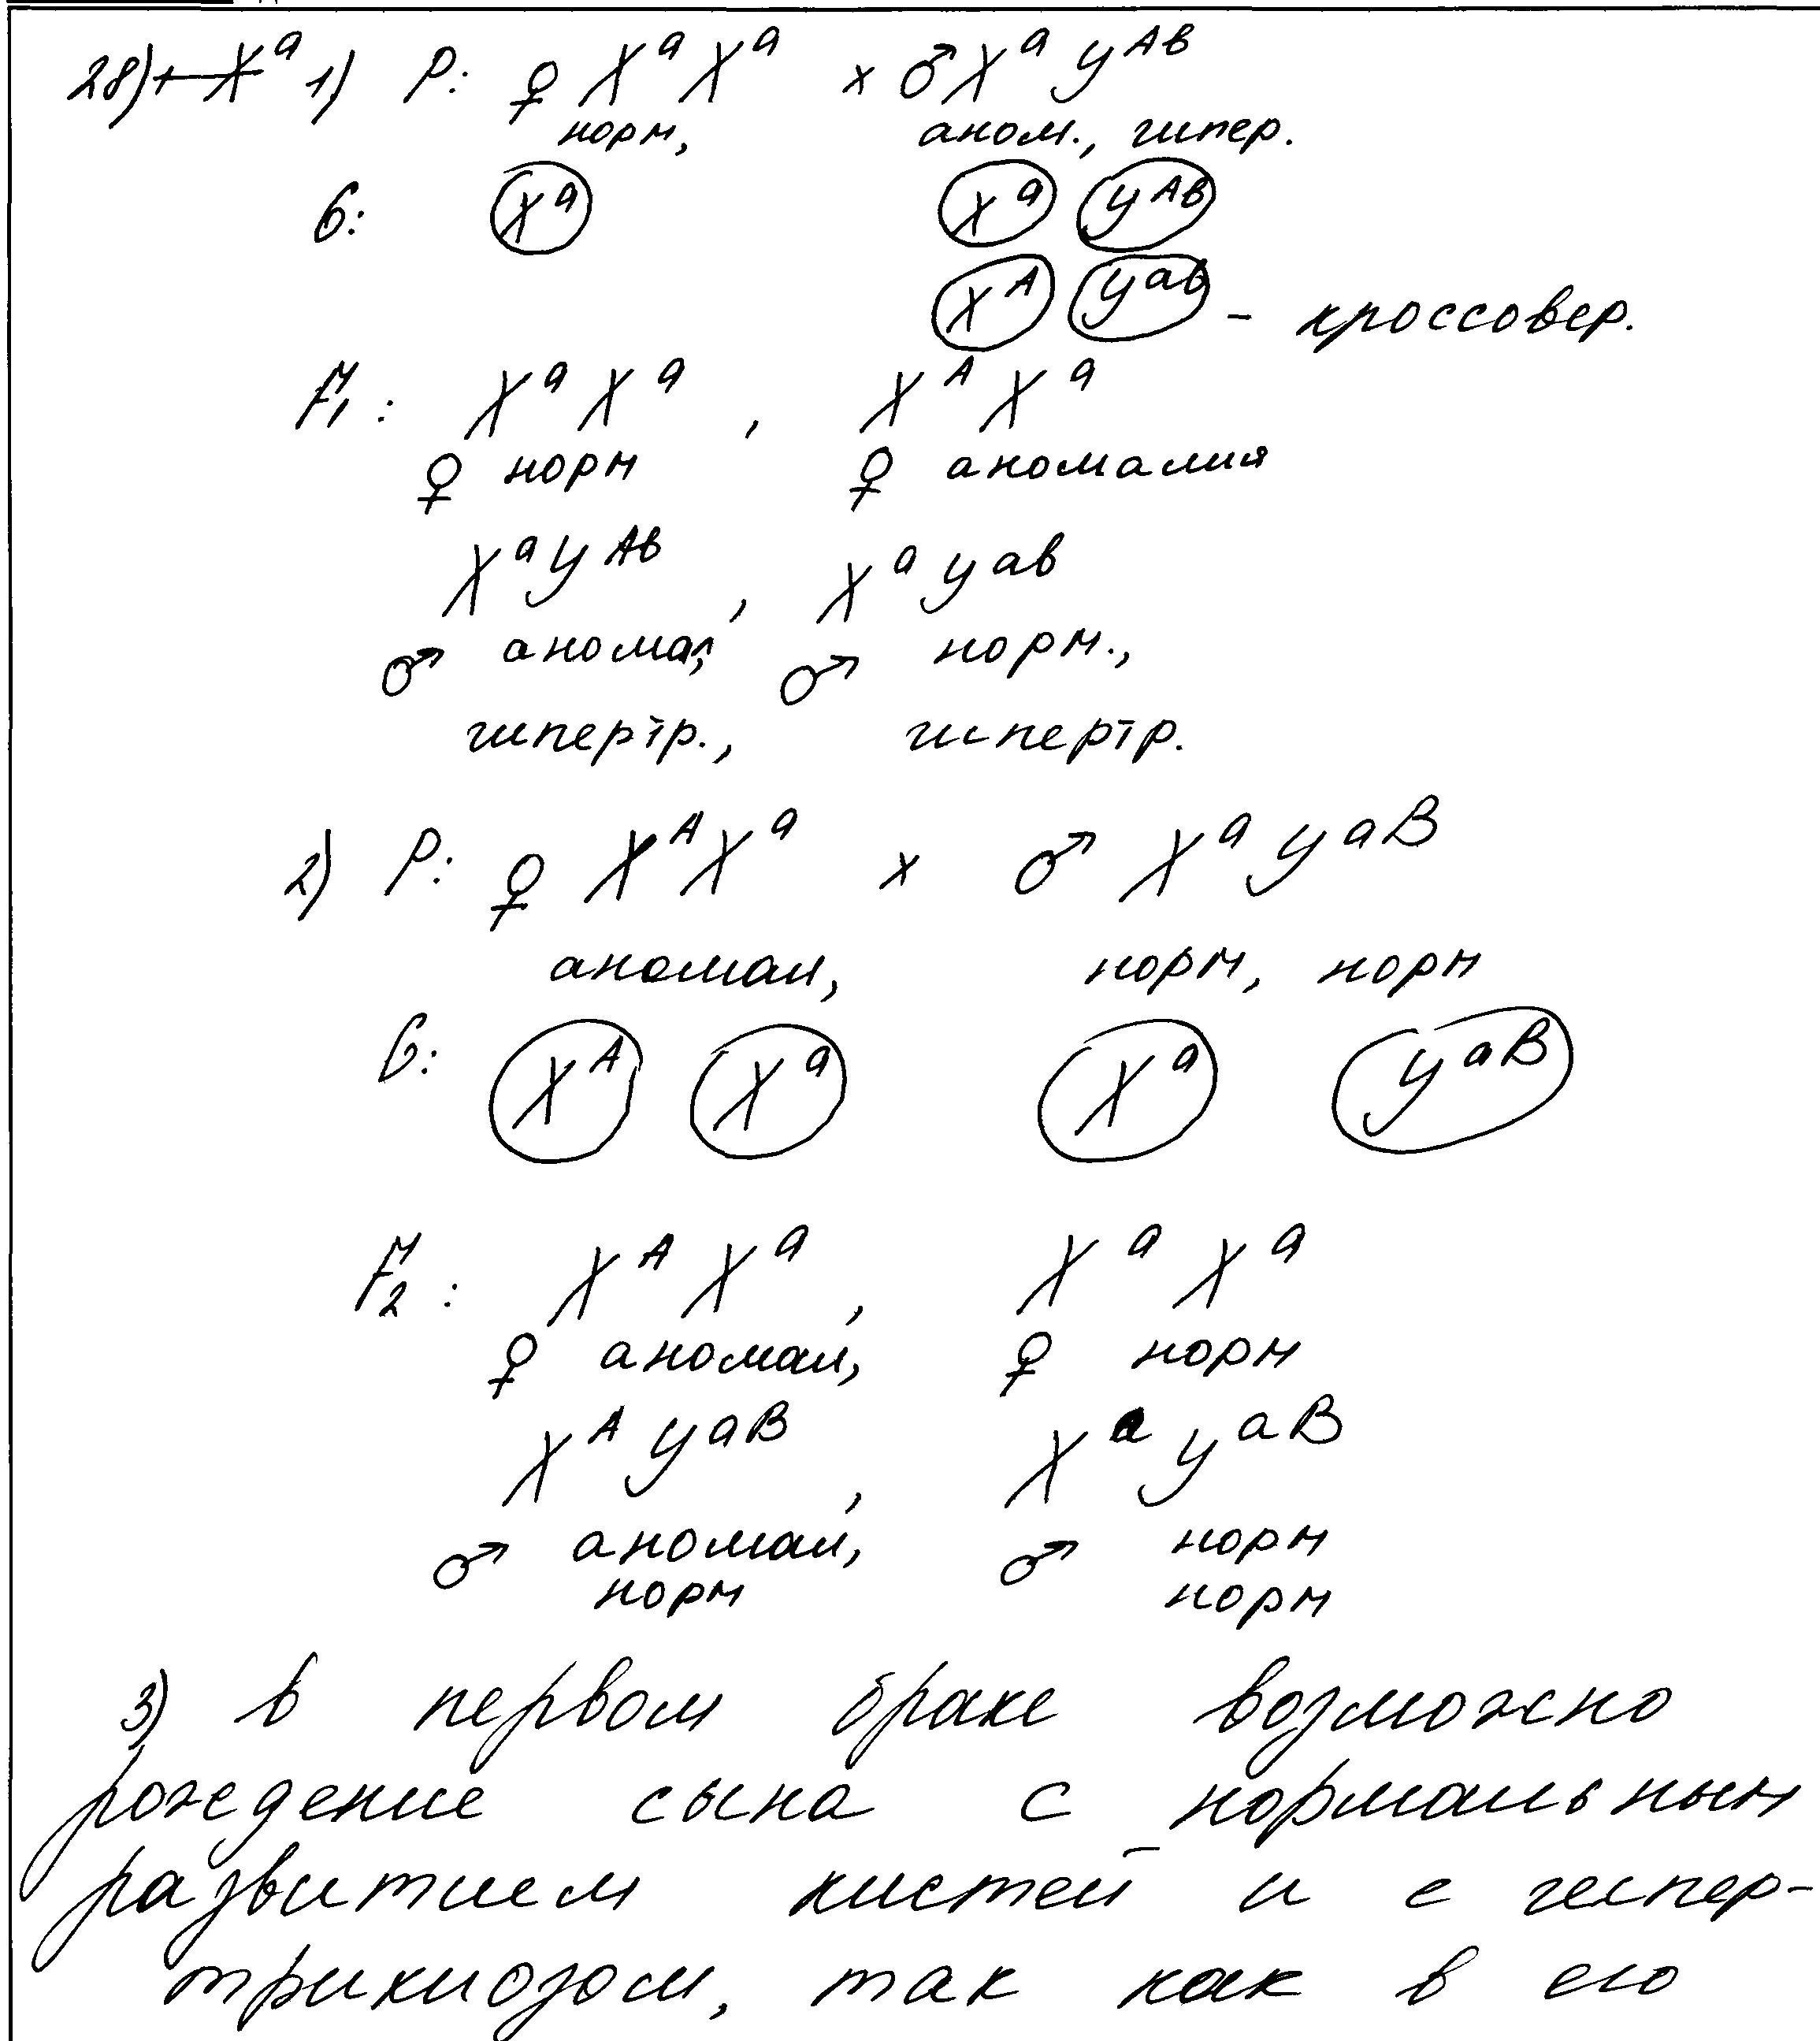 28) + X^a 1) P: ♀ X^a X^a × ♂ X^a y^Ав
норм, аном., гипер.
G: X^a X^a y^Ав
X^A y^ав - кроссовер.
F1: X^a X^a , X^A X^a
♀ норм ♀ аномалия
X^a y^Ав , X^a y^ав
♂ аномал, ♂ норм.,
гипертр., гипертр.
2) P: ♀ X^A X^a × ♂ X^a y^aB
аномал, норм, норм
G: X^A X^a X^a y^aB
F2: X^A X^a , X^a X^a
♀ аномал, ♀ норм
X^A y^aB , X^a y^aB
♂ аномал, ♂ норм
норм норм
3) В первом браке возможно
рождение сына с нормальным
развитием кистей и с гипер-
трихиозом, так как в его